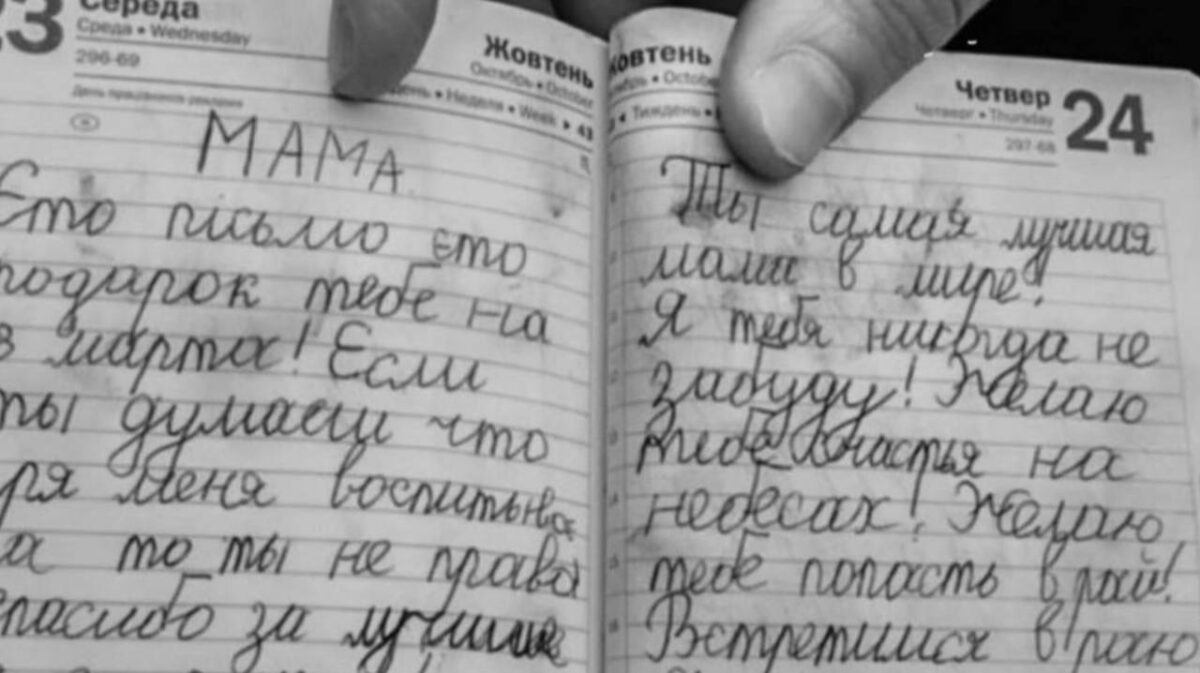 23
Середа
Среда • Wednesday
296-69
Жовтень
Октябрь • October
• Неделя • Week ► 43
МАМА
Єто письмо єто
подарок тебе на
8 марта! Єсли
ты думаєш что
зря меня воспитыва
ла то ты не права
спасибо за лучшие
Жовтень
• October
◄ Тиждень •
Четвер 24
Четверг • Thursday
297-68
Ты самая лучшая
мама в мире!
Я тебя никогда не
забуду! Желаю
тебе счастья на
небесах! Желаю
тебе попасть в рай!
Встретимся в раю